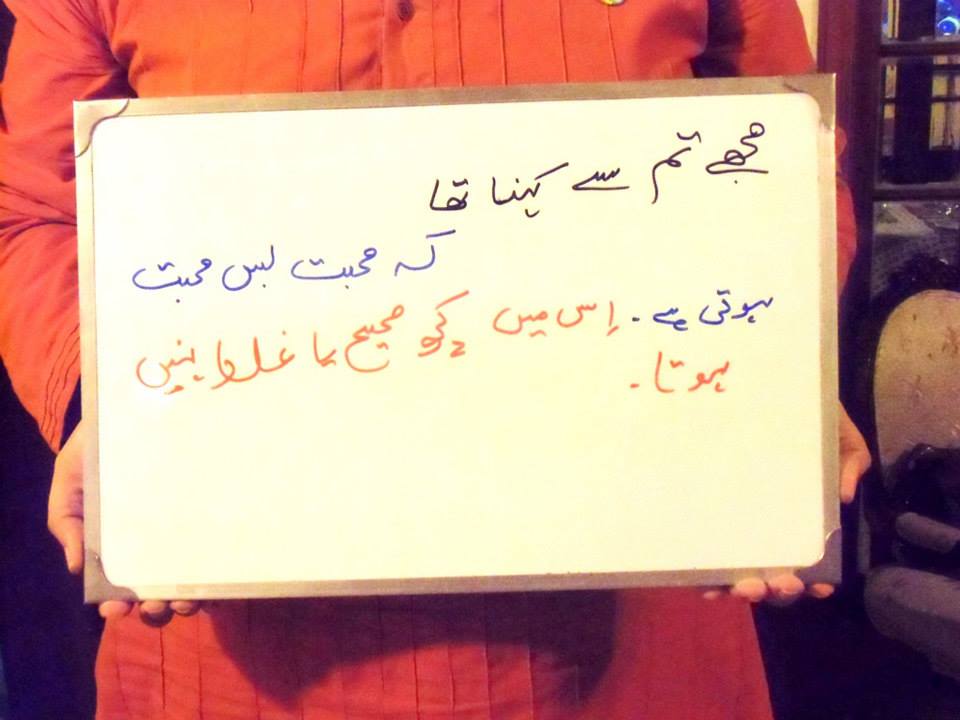 مجھے تم سے کہنا تھا
کہ محبت بس محبت
ہوتی ہے۔ اِس میں کچھ صحیح یا غلط نہیں
ہوتا۔